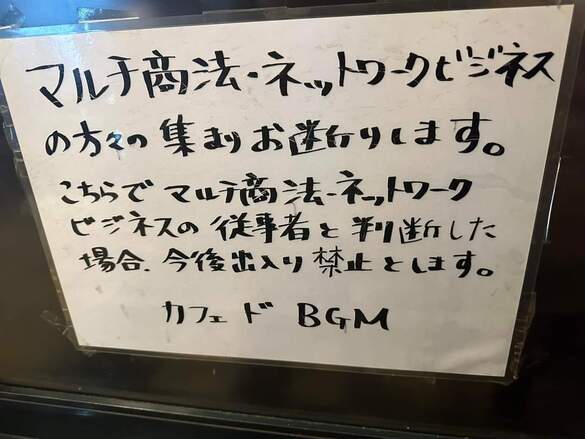 マルチ商法・ネットワークビジネス
の方々の集まりお断りします。
こちらでマルチ商法・ネットワーク
ビジネスの従事者と判断した
場合、今後出入り禁止とします。
カフェド BGM